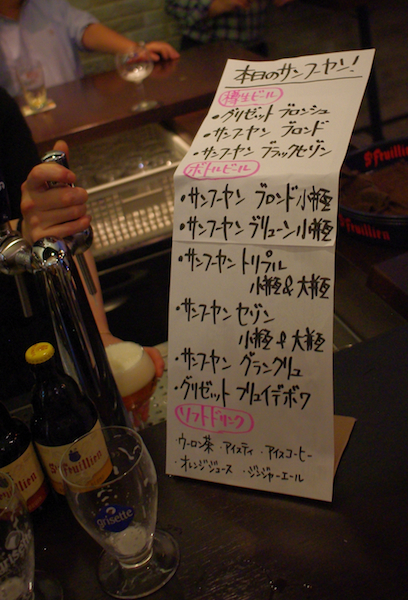 本日のサンフーヤン!
樽生ビール
・グリゼット ブロンシュ
・サンフーヤン ブロンド
・サンフーヤン ブラックセゾン
ボトルビール
・サンフーヤン ブロンド 小瓶
・サンフーヤン ブリューン 小瓶
・サンフーヤン トリプル
小瓶 & 大瓶
・サンフーヤン セゾン
小瓶 & 大瓶
・サンフーヤン グランクリュ
・グリゼット フリュイデボワ
ソフトドリンク
・ウーロン茶 ・アイスティ ・アイスコーヒー
・オレンジジュース ・ジンジャーエール
St-Feuillien
St-Feuillien
Grisette